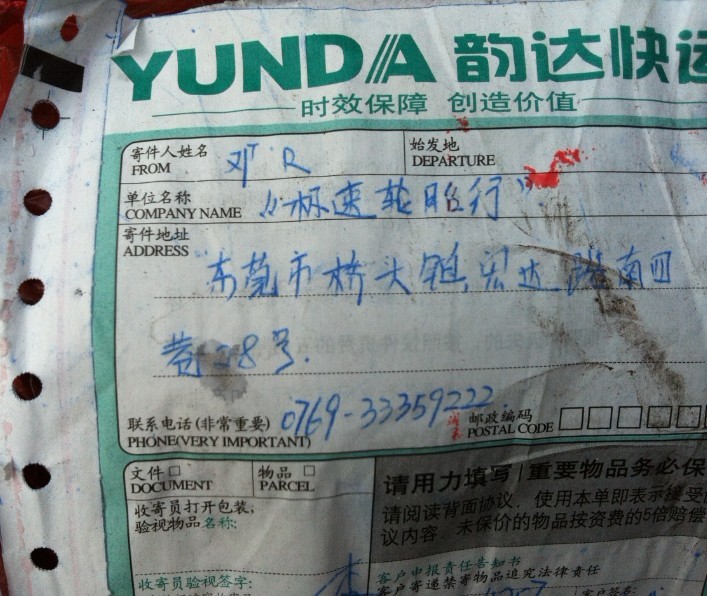 YUNDA 韵达快运
时效保障 创造价值
寄件人姓名 始发地
FROM 邓 R DEPARTURE
单位名称
COMPANY NAME "极速轮胎行"
寄件地址
ADDRESS
东莞市桥头镇宏达路南四
巷28号.
联系电话(非常重要) 0769-33359222 邮政编码
PHONE(VERY IMPORTANT) POSTAL CODE
文件 物品
DOCUMENT PARCEL
请用力填写 重要物品务必保
收寄员打开包装,
验视物品名称:
请阅读背面协议, 使用本单即表示接受
议内容. 未保价的物品按资费的5倍赔偿
收寄员验视签字:
客户申报责任告知书
客户寄递禁寄物品追究法律责任
客户签名: